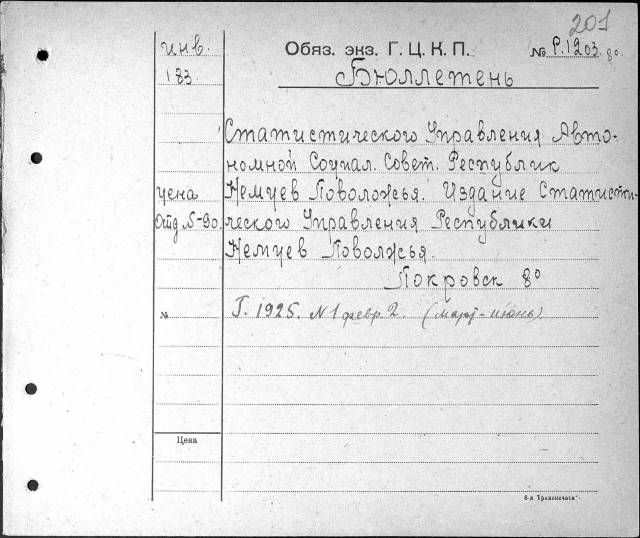 201
инв.
183
Обяз. экз. Г. Ц. К. П.
№ Р.1203. 8о
Бюллетень
Статистического Управления Авто-
номной Социал. Совет. Республик
Немцев Поволожья. Издание Статисти-
ческого Управления Республики
Немцев Поволжья.
Покровск 8°
цена
Отд №-90.
№
Г. 1925. N 1 февр. 2. (март-июнь)
Цена